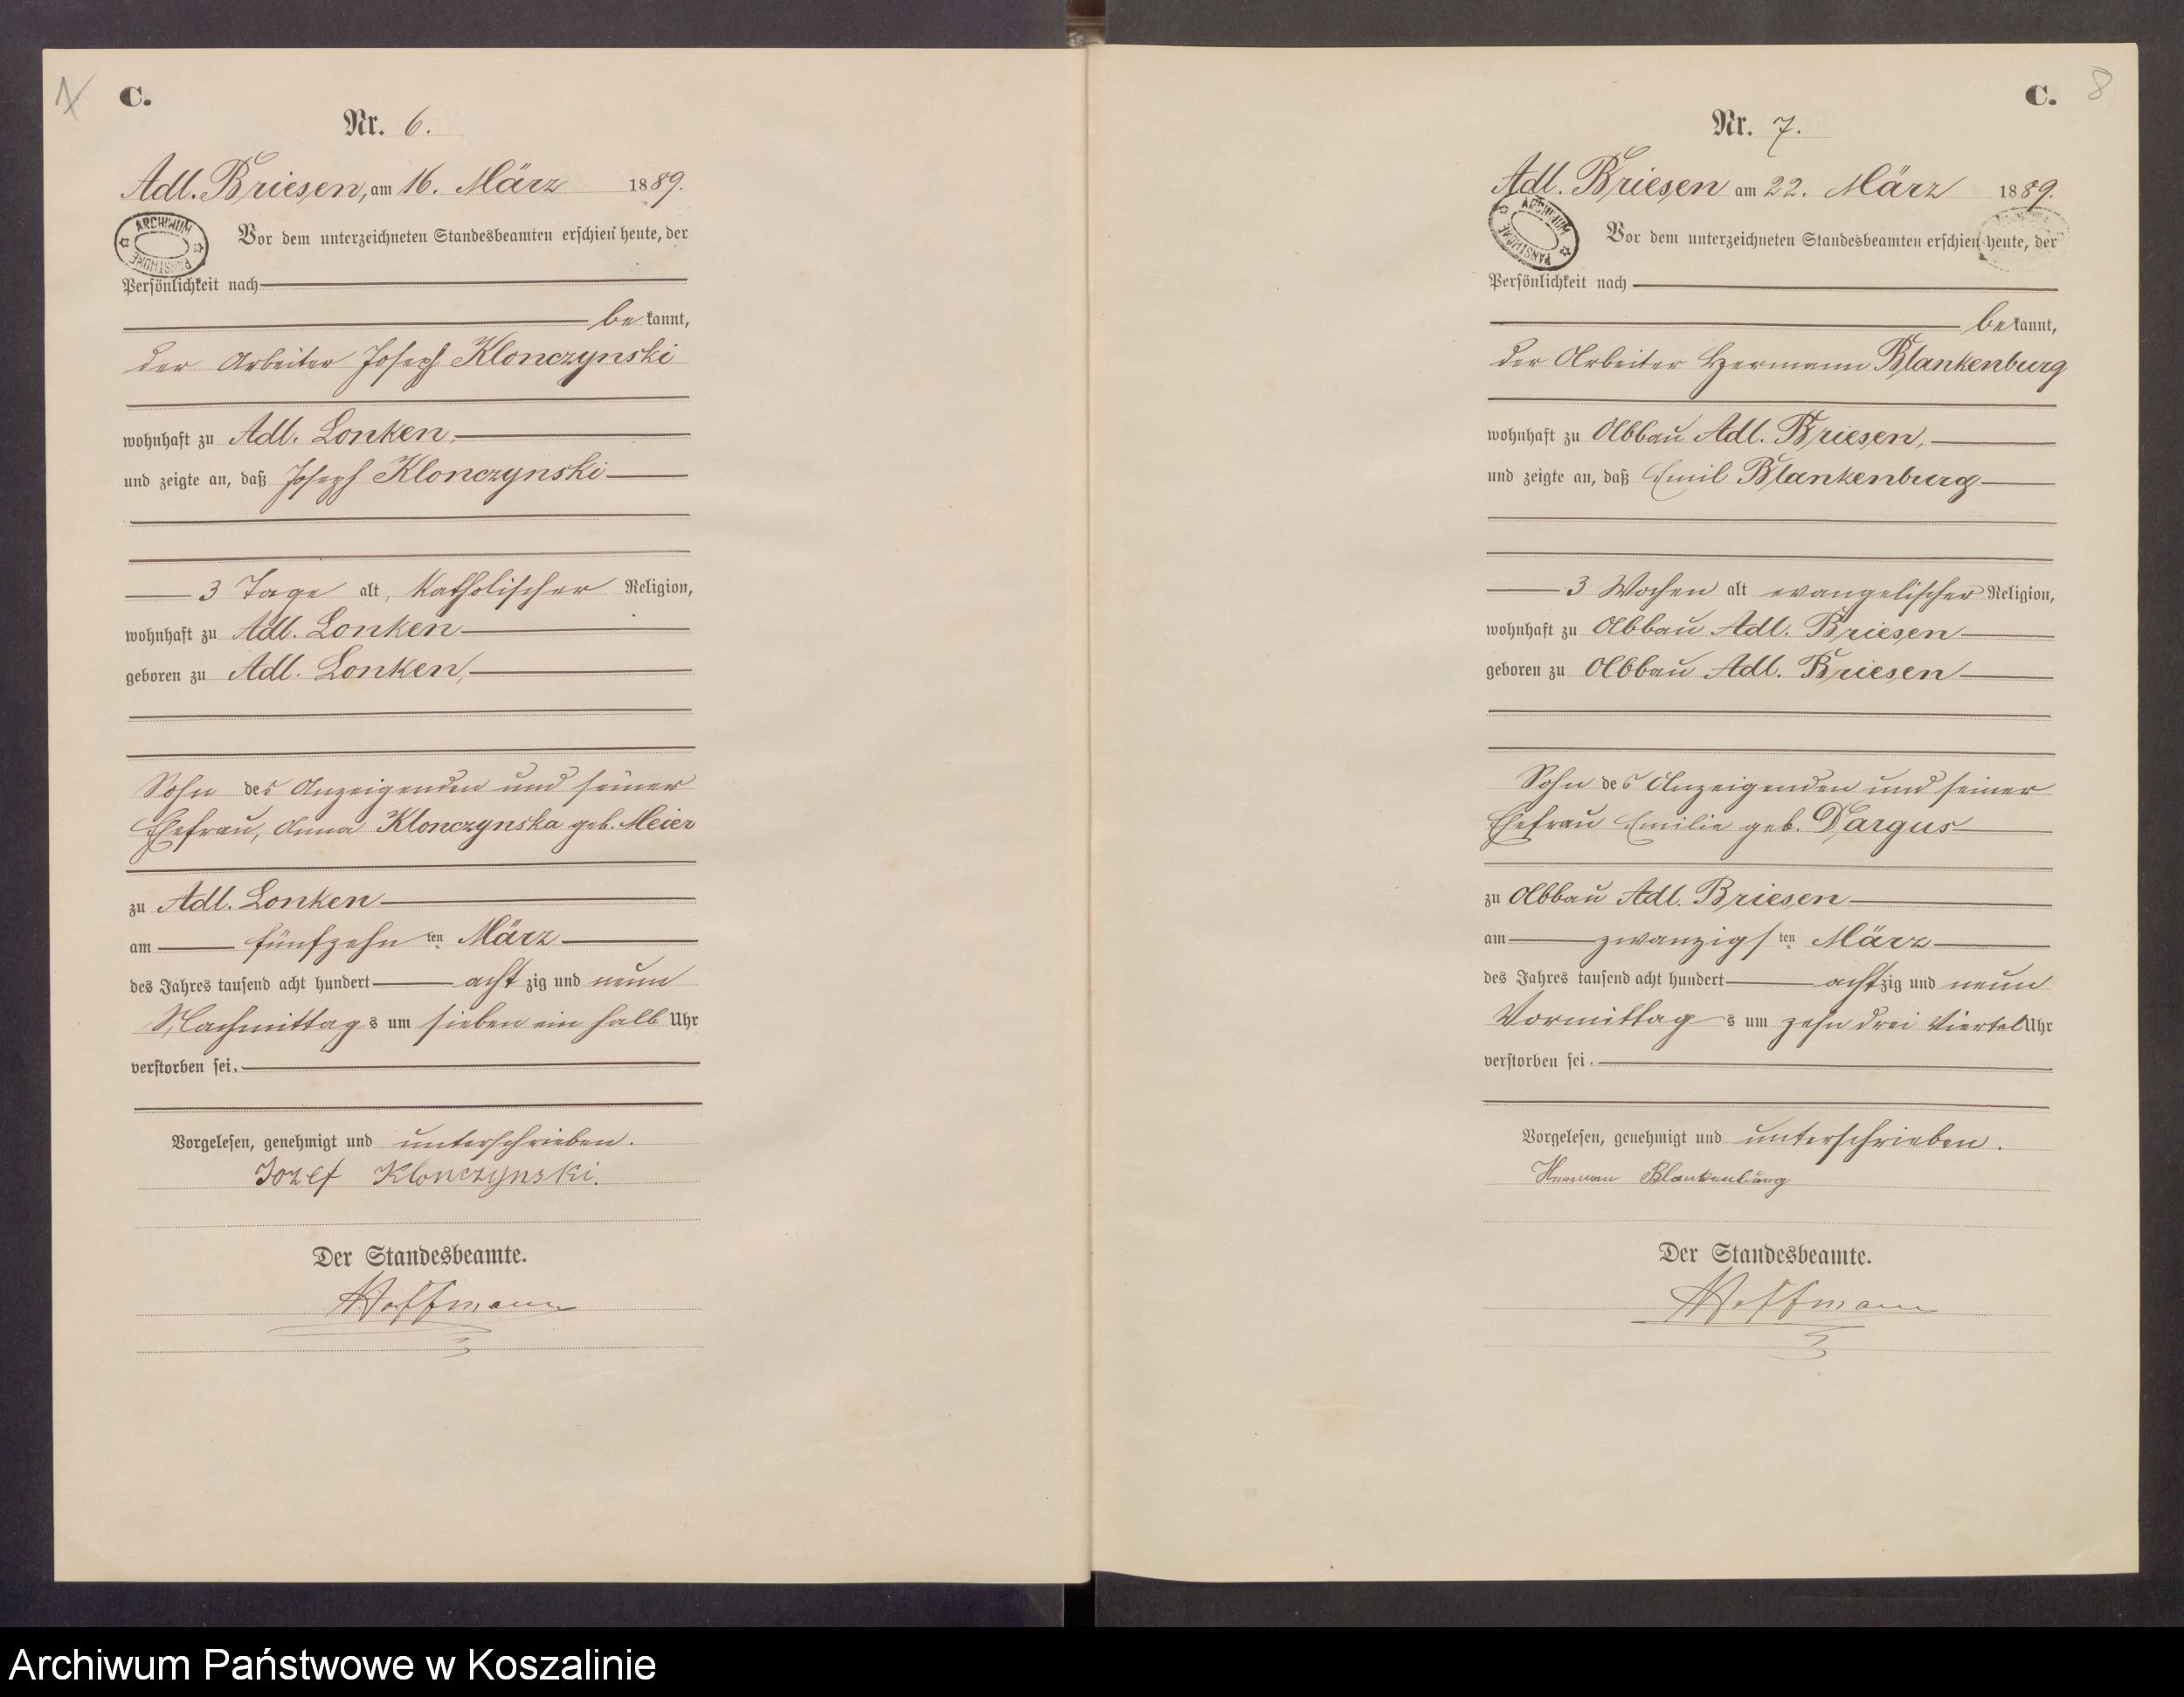 C.
Nr. 6.
Adl. Briesen, am 16. März 1889.
ARCHIWUM
PAŃSTWOWE
Vor dem unterzeichneten Standesbeamten erschien heute, der
Persönlichkeit nach
bekannt,
der Arbeiter Joseph Klonczynski
wohnhaft zu Adl. Lonken,
und zeigte an, daß Joseph Klonczynski
3 Tage alt, katholischer Religion,
wohnhaft zu Adl. Lonken
geboren zu Adl. Lonken,
Sohn des Anzeigenden und seiner
Ehefrau, Anna Klonczynska geb. Meier
zu Adl. Lonken
am fünfzehn ten März
des Jahres tausend acht hundert achtzig und neun
Nachmittags um sieben ein halb Uhr
verstorben sei.
Vorgelesen, genehmigt und unterschrieben.
Jozef Klonczynski.
Der Standesbeamte.
Hoffmann
C. 8
Nr. 7.
Adl. Briesen am 22. März 1889.
ARCHIWUM
PAŃSTWOWE
Vor dem unterzeichneten Standesbeamten erschien heute, der
Persönlichkeit nach
bekannt,
der Arbeiter Hermann Blankenburg
wohnhaft zu Abbau Adl. Briesen,
und zeigte an, daß Emil Blankenburg
3 Wochen alt evangelischer Religion,
wohnhaft zu Abbau Adl. Briesen
geboren zu Abbau Adl. Briesen
Sohn des Anzeigenden und seiner
Ehefrau Emilie geb. Dargus
zu Abbau Adl. Briesen
am zwanzigsten März
des Jahres tausend acht hundert achtzig und neun
Vormittags um zehn drei Viertel Uhr
verstorben sei.
Vorgelesen, genehmigt und unterschrieben.
Herman Blankenburg
Der Standesbeamte.
Hoffmann
Archiwum Państwowe w Koszalinie